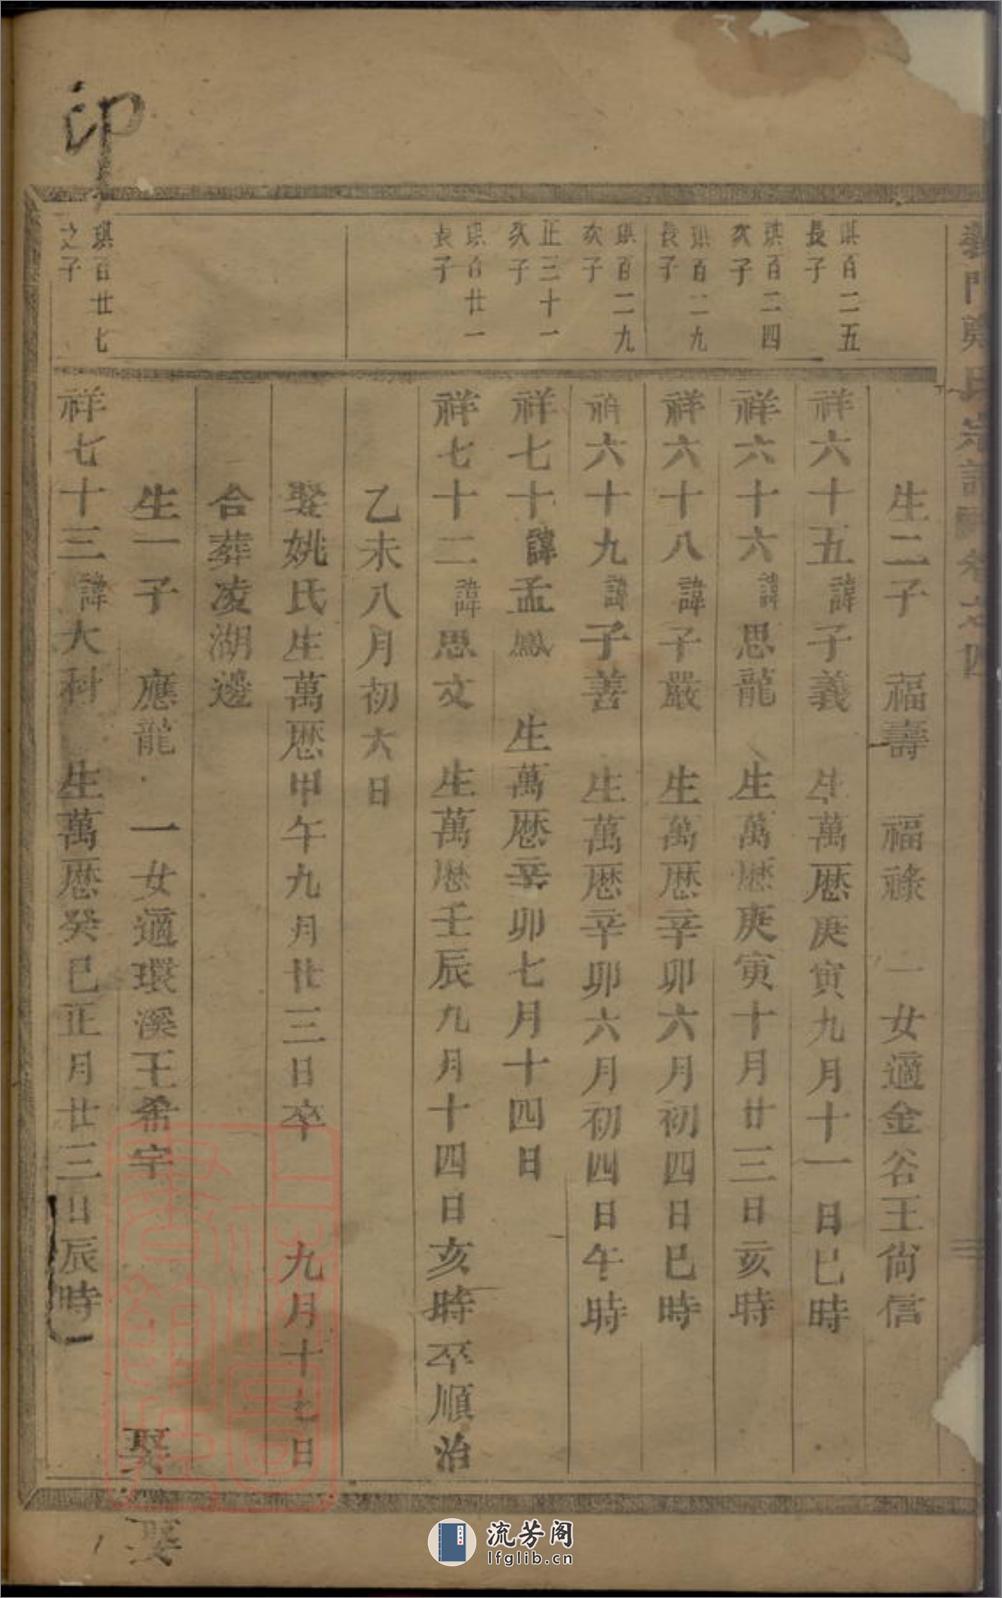 印
義門鄭氏宗譜 卷之四
生二子 福壽 福祿 一女適金谷王尙信
琪百二五
長子
祥六十五諱子義 生萬厯庚寅九月十一日巳時
琪百二四
次子
祥六十六諱思龍 生萬厯庚寅十月廿三日亥時
琪百二九
長子
祥六十八諱子嚴 生萬厯辛卯六月初四日巳時
琪百二九
次子
祥六十九諱子善 生萬厯辛卯六月初四日午時
正三十一
次子
祥七十諱孟鳳 生萬厯辛卯七月十四日
琪百廿一
長子
祥七十二諱思文 生萬厯壬辰九月十四日亥時卒順治
乙未八月初六日
娶姚氏生萬厯甲午九月廿三日卒 九月十七日
合葬凌湖邊
生一子 應龍 一女適環溪王希宇
琪百廿七
之子
祥七十三諱大科 生萬厯癸巳正月廿三日辰時
娶
流芳阁
lfglib.cn